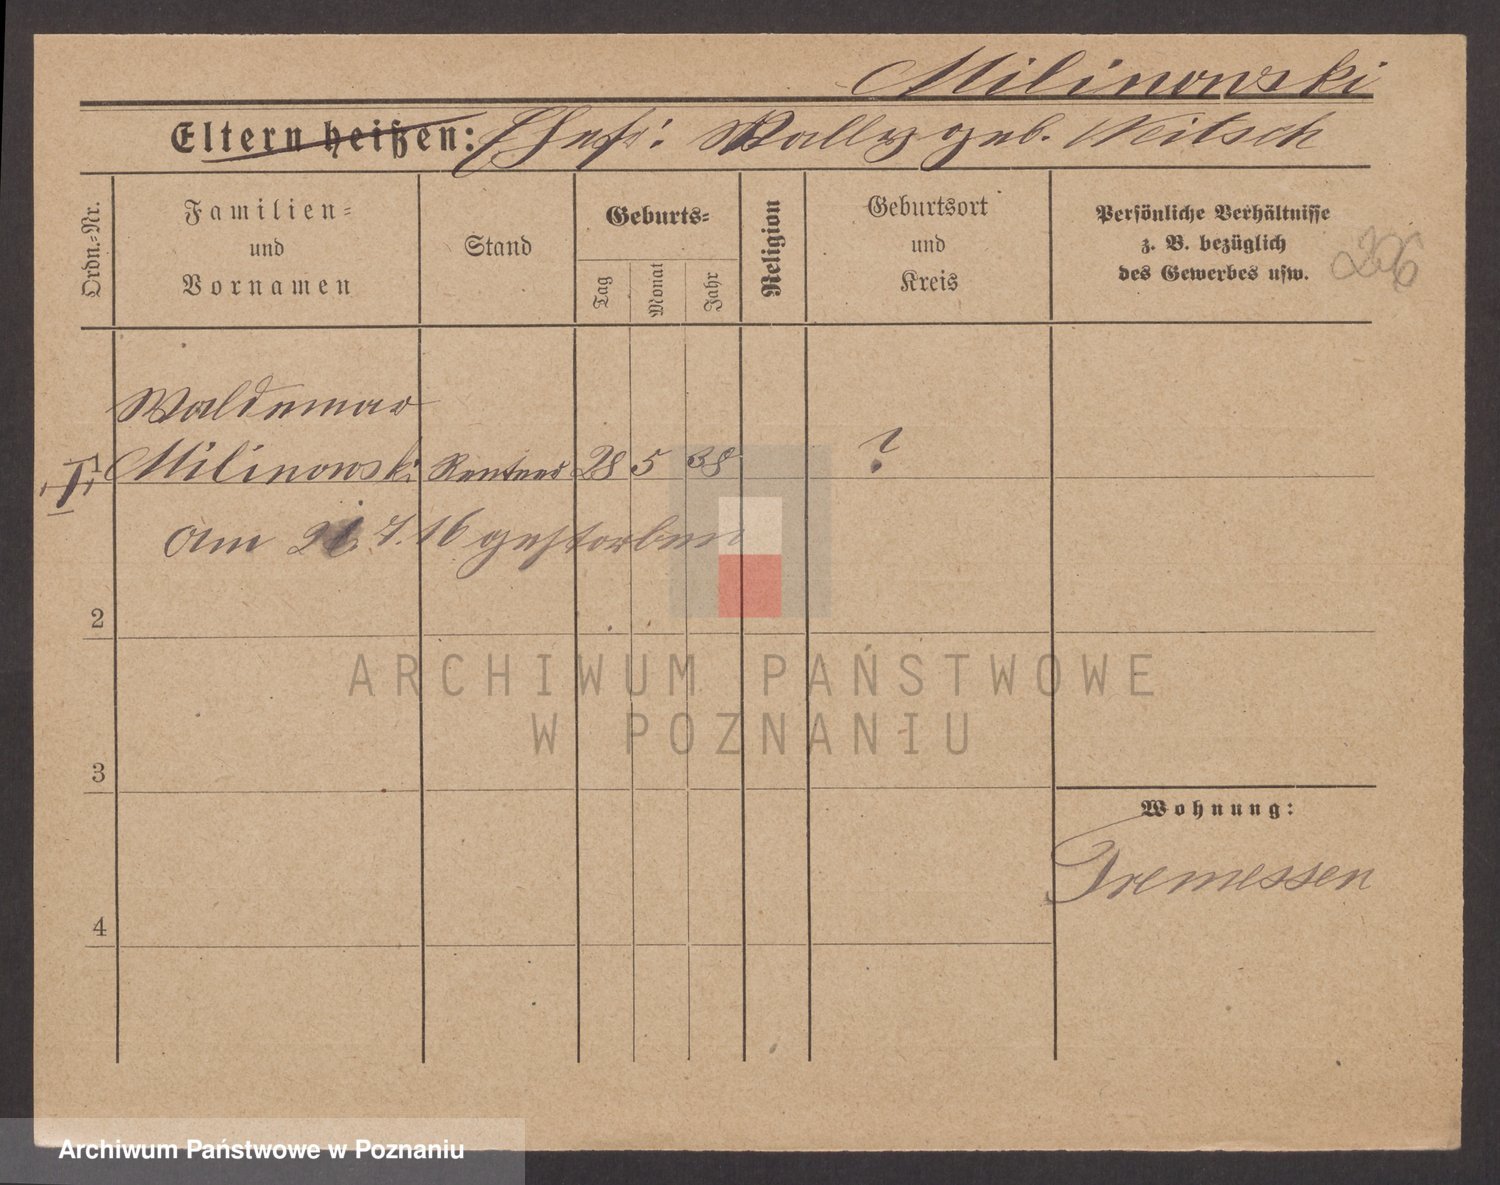 Milinowski
Eltern heißen: Ehefr: Wally geb. Neitsch
Ordn.-Nr.
Familien-
und
Vornamen
Stand
Geburts-
Tag
Monat
Jahr
Religion
Geburtsort
und
Kreis
Persönliche Verhältnisse
z. B. bezüglich
des Gewerbes usw.
226
Waldemar
Milinowski Rentner 28 5 38 ?
Am 21. 7. 16 gestorben
2
3
4
Wohnung:
Tremessen
ARCHIWUM PAŃSTWOWE
W POZNANIU
Archiwum Państwowe w Poznaniu